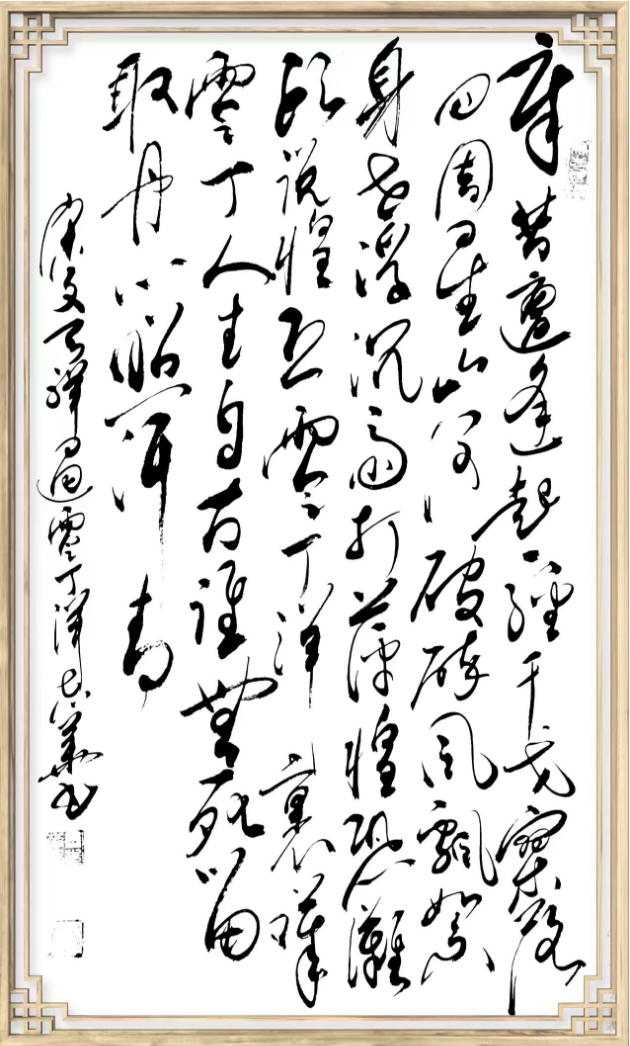 辛苦遭逢起一經干戈寥落
四周星山河破碎風飄絮
身世浮沉雨打萍惶恐灘
頭說惶恐零丁洋裏嘆
零丁人生自古誰無死留
取丹心照汗青
宋文天祥過零丁洋 華書